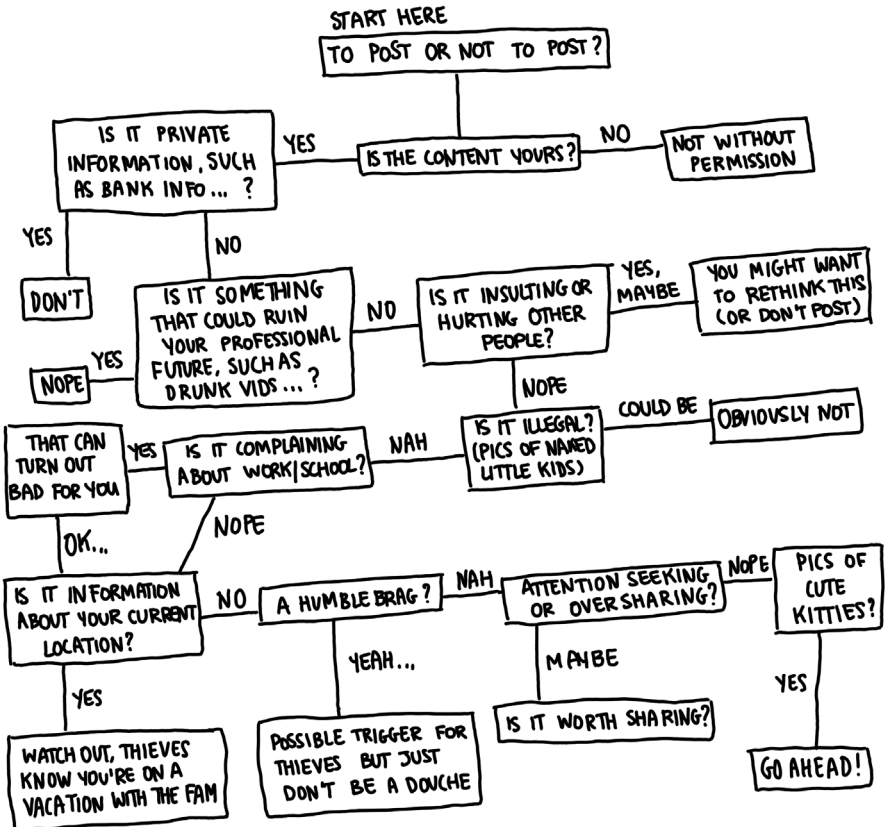 START HERE
TO POST OR NOT TO POST?
IS THE CONTENT YOURS?
NO
NOT WITHOUT
PERMISSION
YES
IS IT PRIVATE
INFORMATION, SUCH
AS BANK INFO... ?
YES
DON'T
NO
IS IT SOMETHING
THAT COULD RUIN
YOUR PROFESSIONAL
FUTURE, SUCH AS
DRUNK VIDS...?
YES
NOPE
NO
IS IT INSULTING OR
HURTING OTHER
PEOPLE?
YES,
MAYBE
YOU MIGHT WANT
TO RETHINK THIS
(OR DON'T POST)
NOPE
IS IT ILLEGAL?
(PICS OF NAKED
LITTLE KIDS)
COULD BE
OBVIOUSLY NOT
NAH
IS IT COMPLAINING
ABOUT WORK/SCHOOL?
YES
THAT CAN
TURN OUT
BAD FOR YOU
OK...
NOPE
IS IT INFORMATION
ABOUT YOUR CURRENT
LOCATION?
YES
WATCH OUT, THIEVES
KNOW YOU'RE ON A
VACATION WITH THE FAM
NO
A HUMBLE BRAG?
YEAH...
POSSIBLE TRIGGER FOR
THIEVES BUT JUST
DON'T BE A DOUCHE
NAH
ATTENTION SEEKING
OR OVERSHARING?
MAYBE
IS IT WORTH SHARING?
NOPE
PICS OF
CUTE
KITTIES?
YES
GO AHEAD!